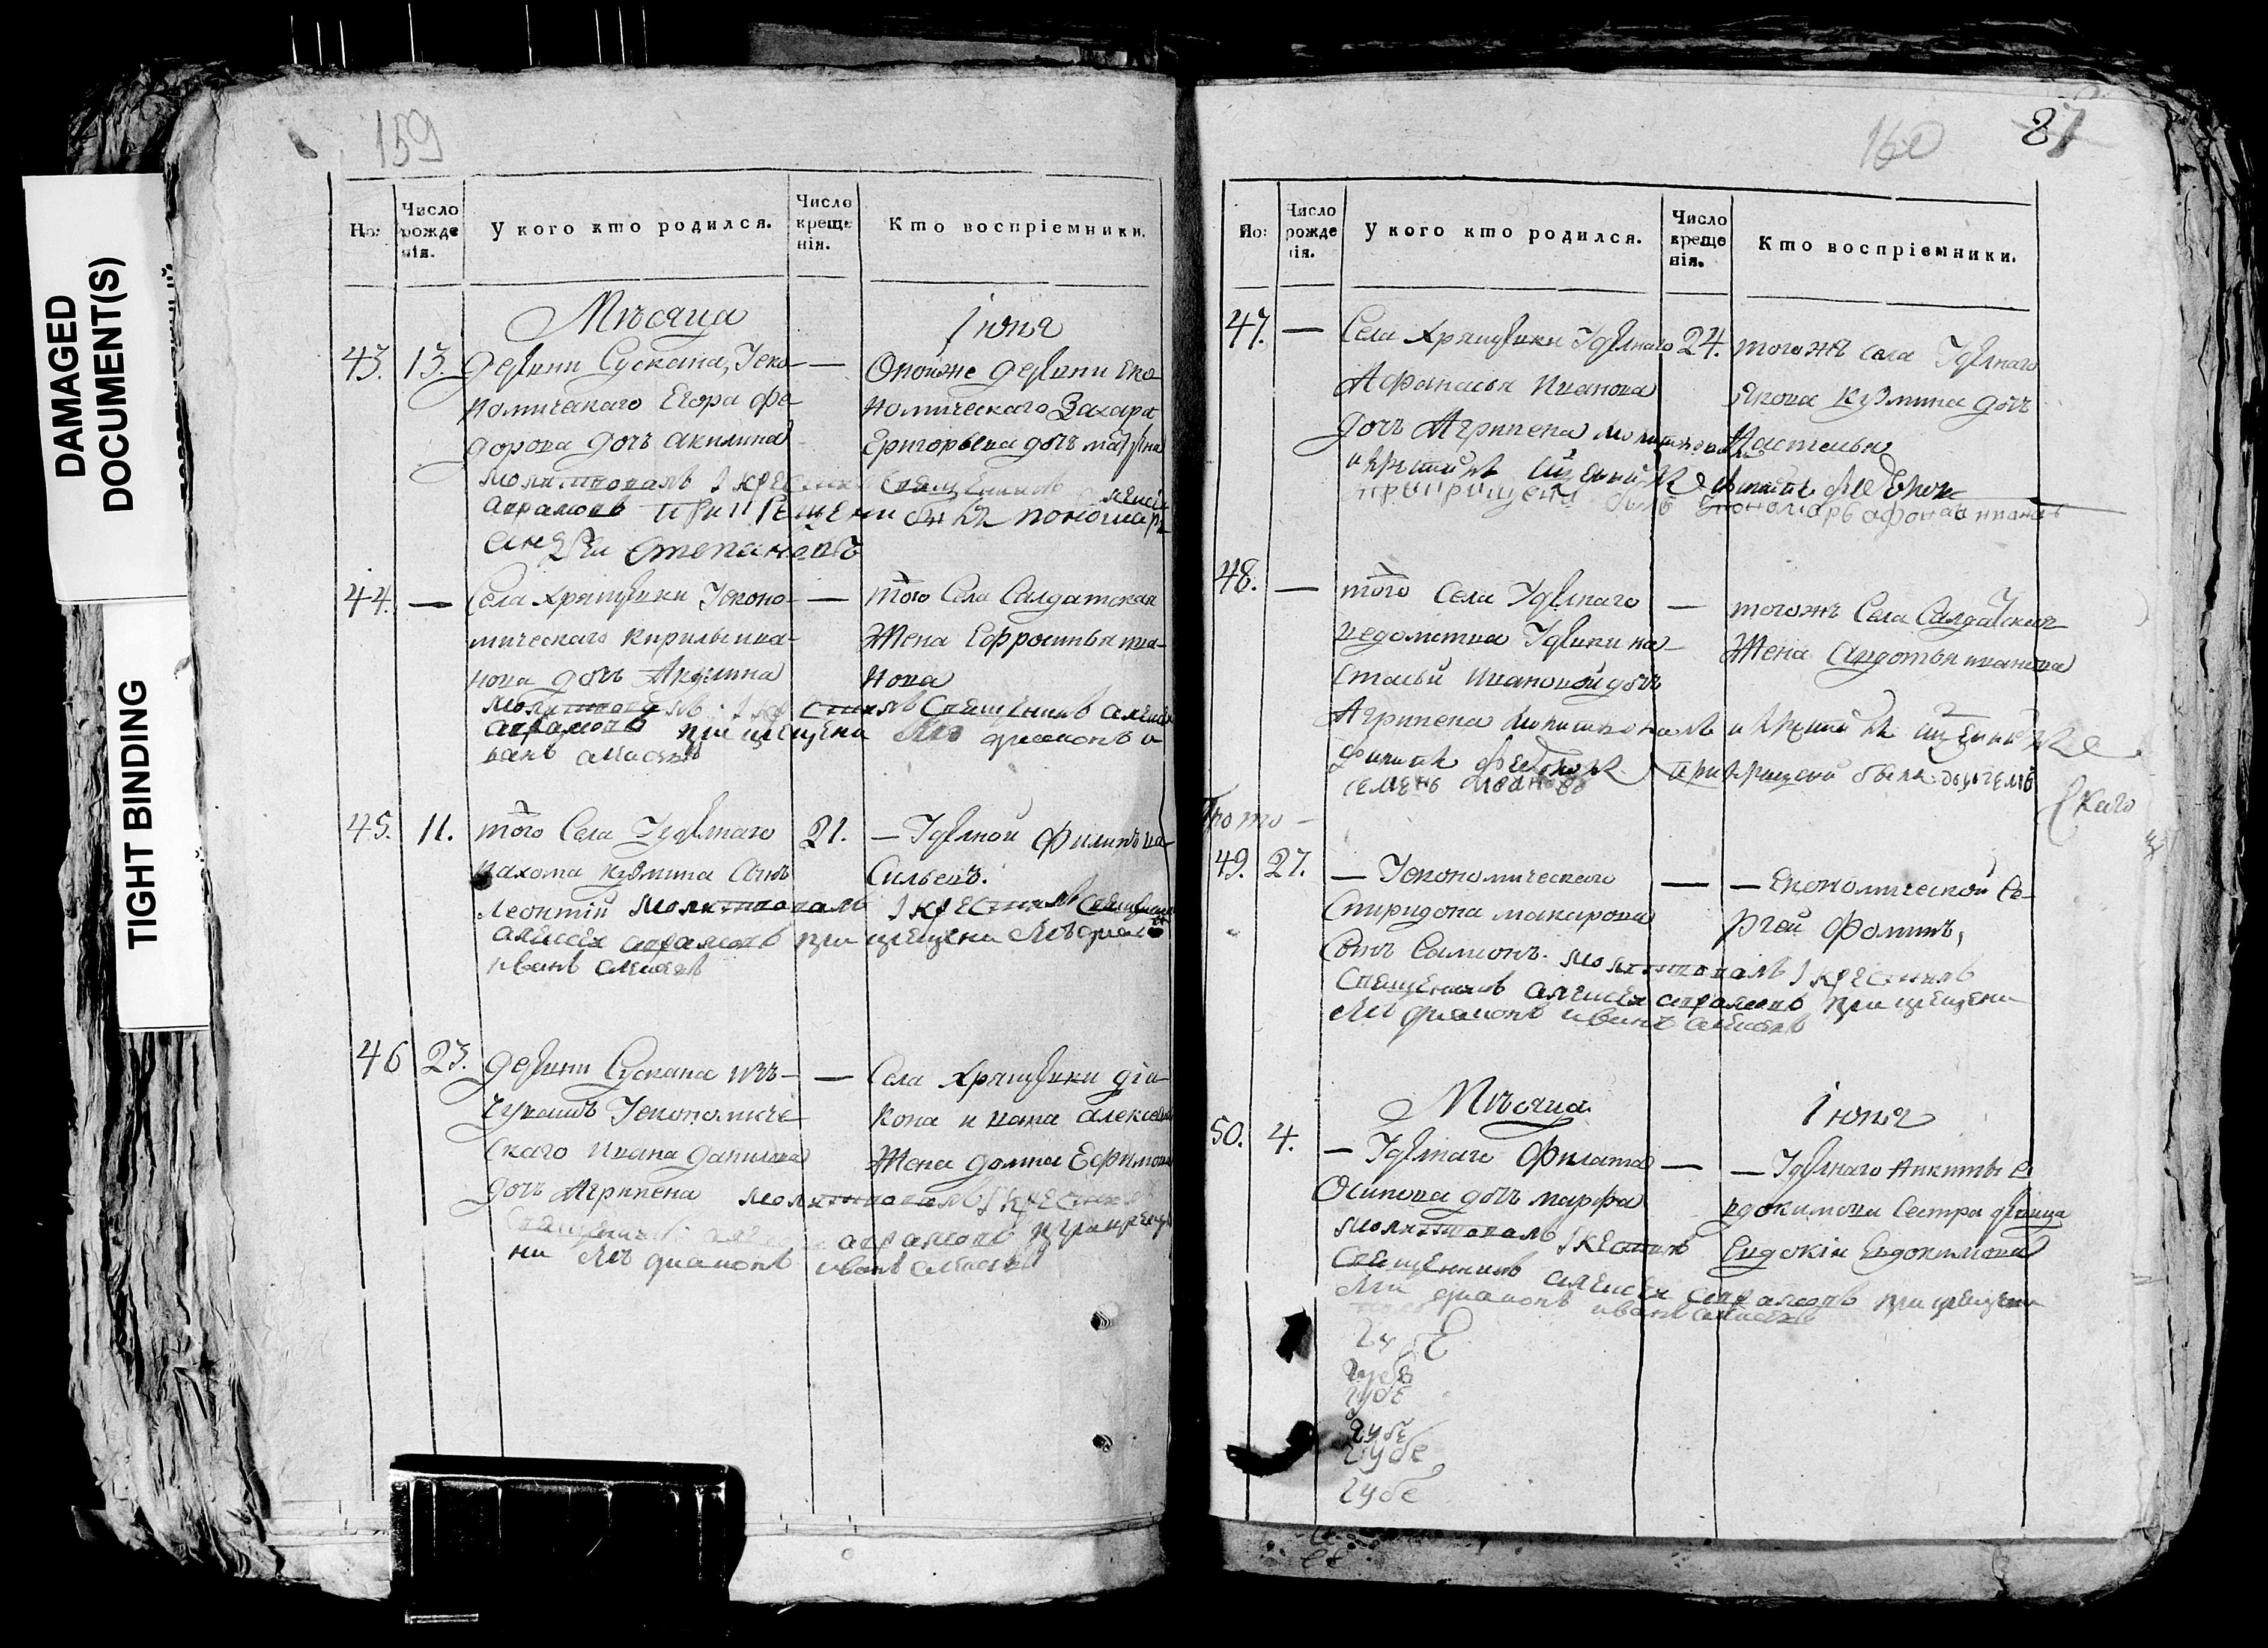 DAMAGED
DOCUMENT(S)
TIGHT BINDING
159
Но:
Число рожденія.
У кого кто родился.
Число крещенія.
Кто воспріемники.
Мѣсяца Іюня
43. 13. деревни Сускана, Уеко-
номическаго Егора Фе-
дорова дочь Акилина
молитвовалъ І крестилъ священникъ алексей
аврамовъ при крещени былъ пономарь
андреи степановъ
— Оноиже деревни еко-
номическаго Захара
Григорьева дочь матрена
44. — Села Хрящевки Уеконо-
мическаго Кирилы ива-
нова дочь Акулина
молитвовалъ І крестилъ священникъ алексей
аврамовъ при крещени диаконъ и
ванъ алексеевъ
— того Села Салдатская
Жена Ефросинья ива-
нова
45. 11. того Села Удѣлнаго
пахома кузмина сынъ
Леонтій молитвовалъ І крестилъ священникъ
алексей аврамовъ при крещени диаконъ
иванъ алексеевъ
21. — Удѣлной Филипъ ва-
сильевъ.
46 23. деревни Сускана изъ
чувашъ Уекономиче-
скаго Ивана данилова
дочь Агрипена молитвовалъ І крестилъ
священникъ аврамовъ при креще
ни диаконъ иванъ алексеевъ
— Села Хрящевки діа-
кона ивана алексеева
Жена домна Ефимова
160
87
Но:
Число рожденія.
У кого кто родился.
Число крещенія.
Кто воспріемники.
47. — Села Хрящевки Удѣлнаго
Афанасья Иванова
дочь Агрипена молитвовалъ
и крестилъ священникъ филипъ федоровъ
при крещении былъ пономарь афонасей ивановъ
24. тогожъ села Удѣлнаго
якова кузмина дочь
Настасья
48. — того Села Удѣлнаго
ведомства Удѣвки на-
стасьи Ивановой дочь
Агрипена молитвовалъ и крестилъ священникъ
филипъ федоровъ при крещении былъ
семенъ ивановъ
— тогожъ Села Салдатская
Жена Авдотья иванова
49. 27. — Уекономическаго
Спиридона макарова
сынъ Самсонъ. молитвовалъ І крестилъ
Священникъ алексей аврамовъ при крещени
диаконъ иванъ алексеевъ
— — Економической Се-
ргей Фоминъ,
скаго
Мѣсяца Іюня
50. 4. — Удѣлнаго Филата
Осипова дочь марфа
молитвовалъ І крестилъ
священникъ алексей аврамовъ при крещени
диаконъ иванъ алексеевъ
— — Удѣлнаго Никиты е
вдокимова Сестра девица
Евдокія Евдокимова
губе
губе
губе
губе
губе
губе